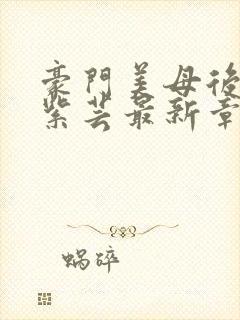 豪門美母後
紫芸最新章
蜗碎